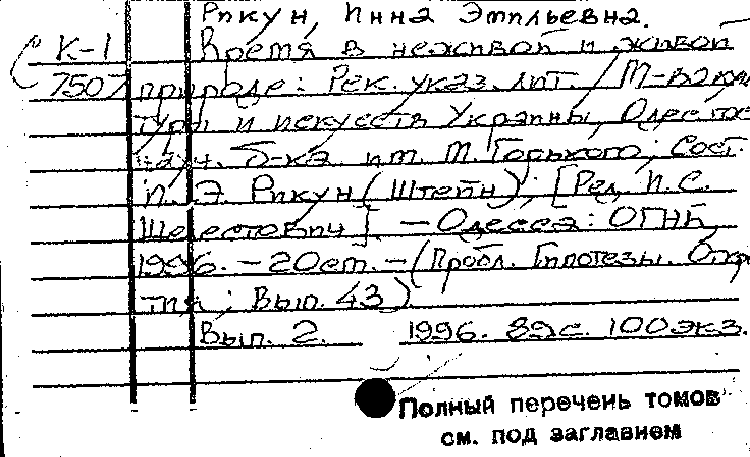 Рикун, Инна Эмильевна.
К-1 Время в неживой и живой
7507 природе: Рек. указ. лит. / М-во куль
туры и искусств Украины, Одес. гос.
науч. б-ка им. М. Горького; Сост.
И. Э. Рикун (Штейн); [Ред. И. С.
Шелестович]. — Одесса: ОГНБ,
1996. — 20 см. — (Пробл. Гипотезы. Откры
тия; Вып. 43)
Вып. 2. 1996. 89 с. 100 экз.
Полный перечень томов
см. под заглавием